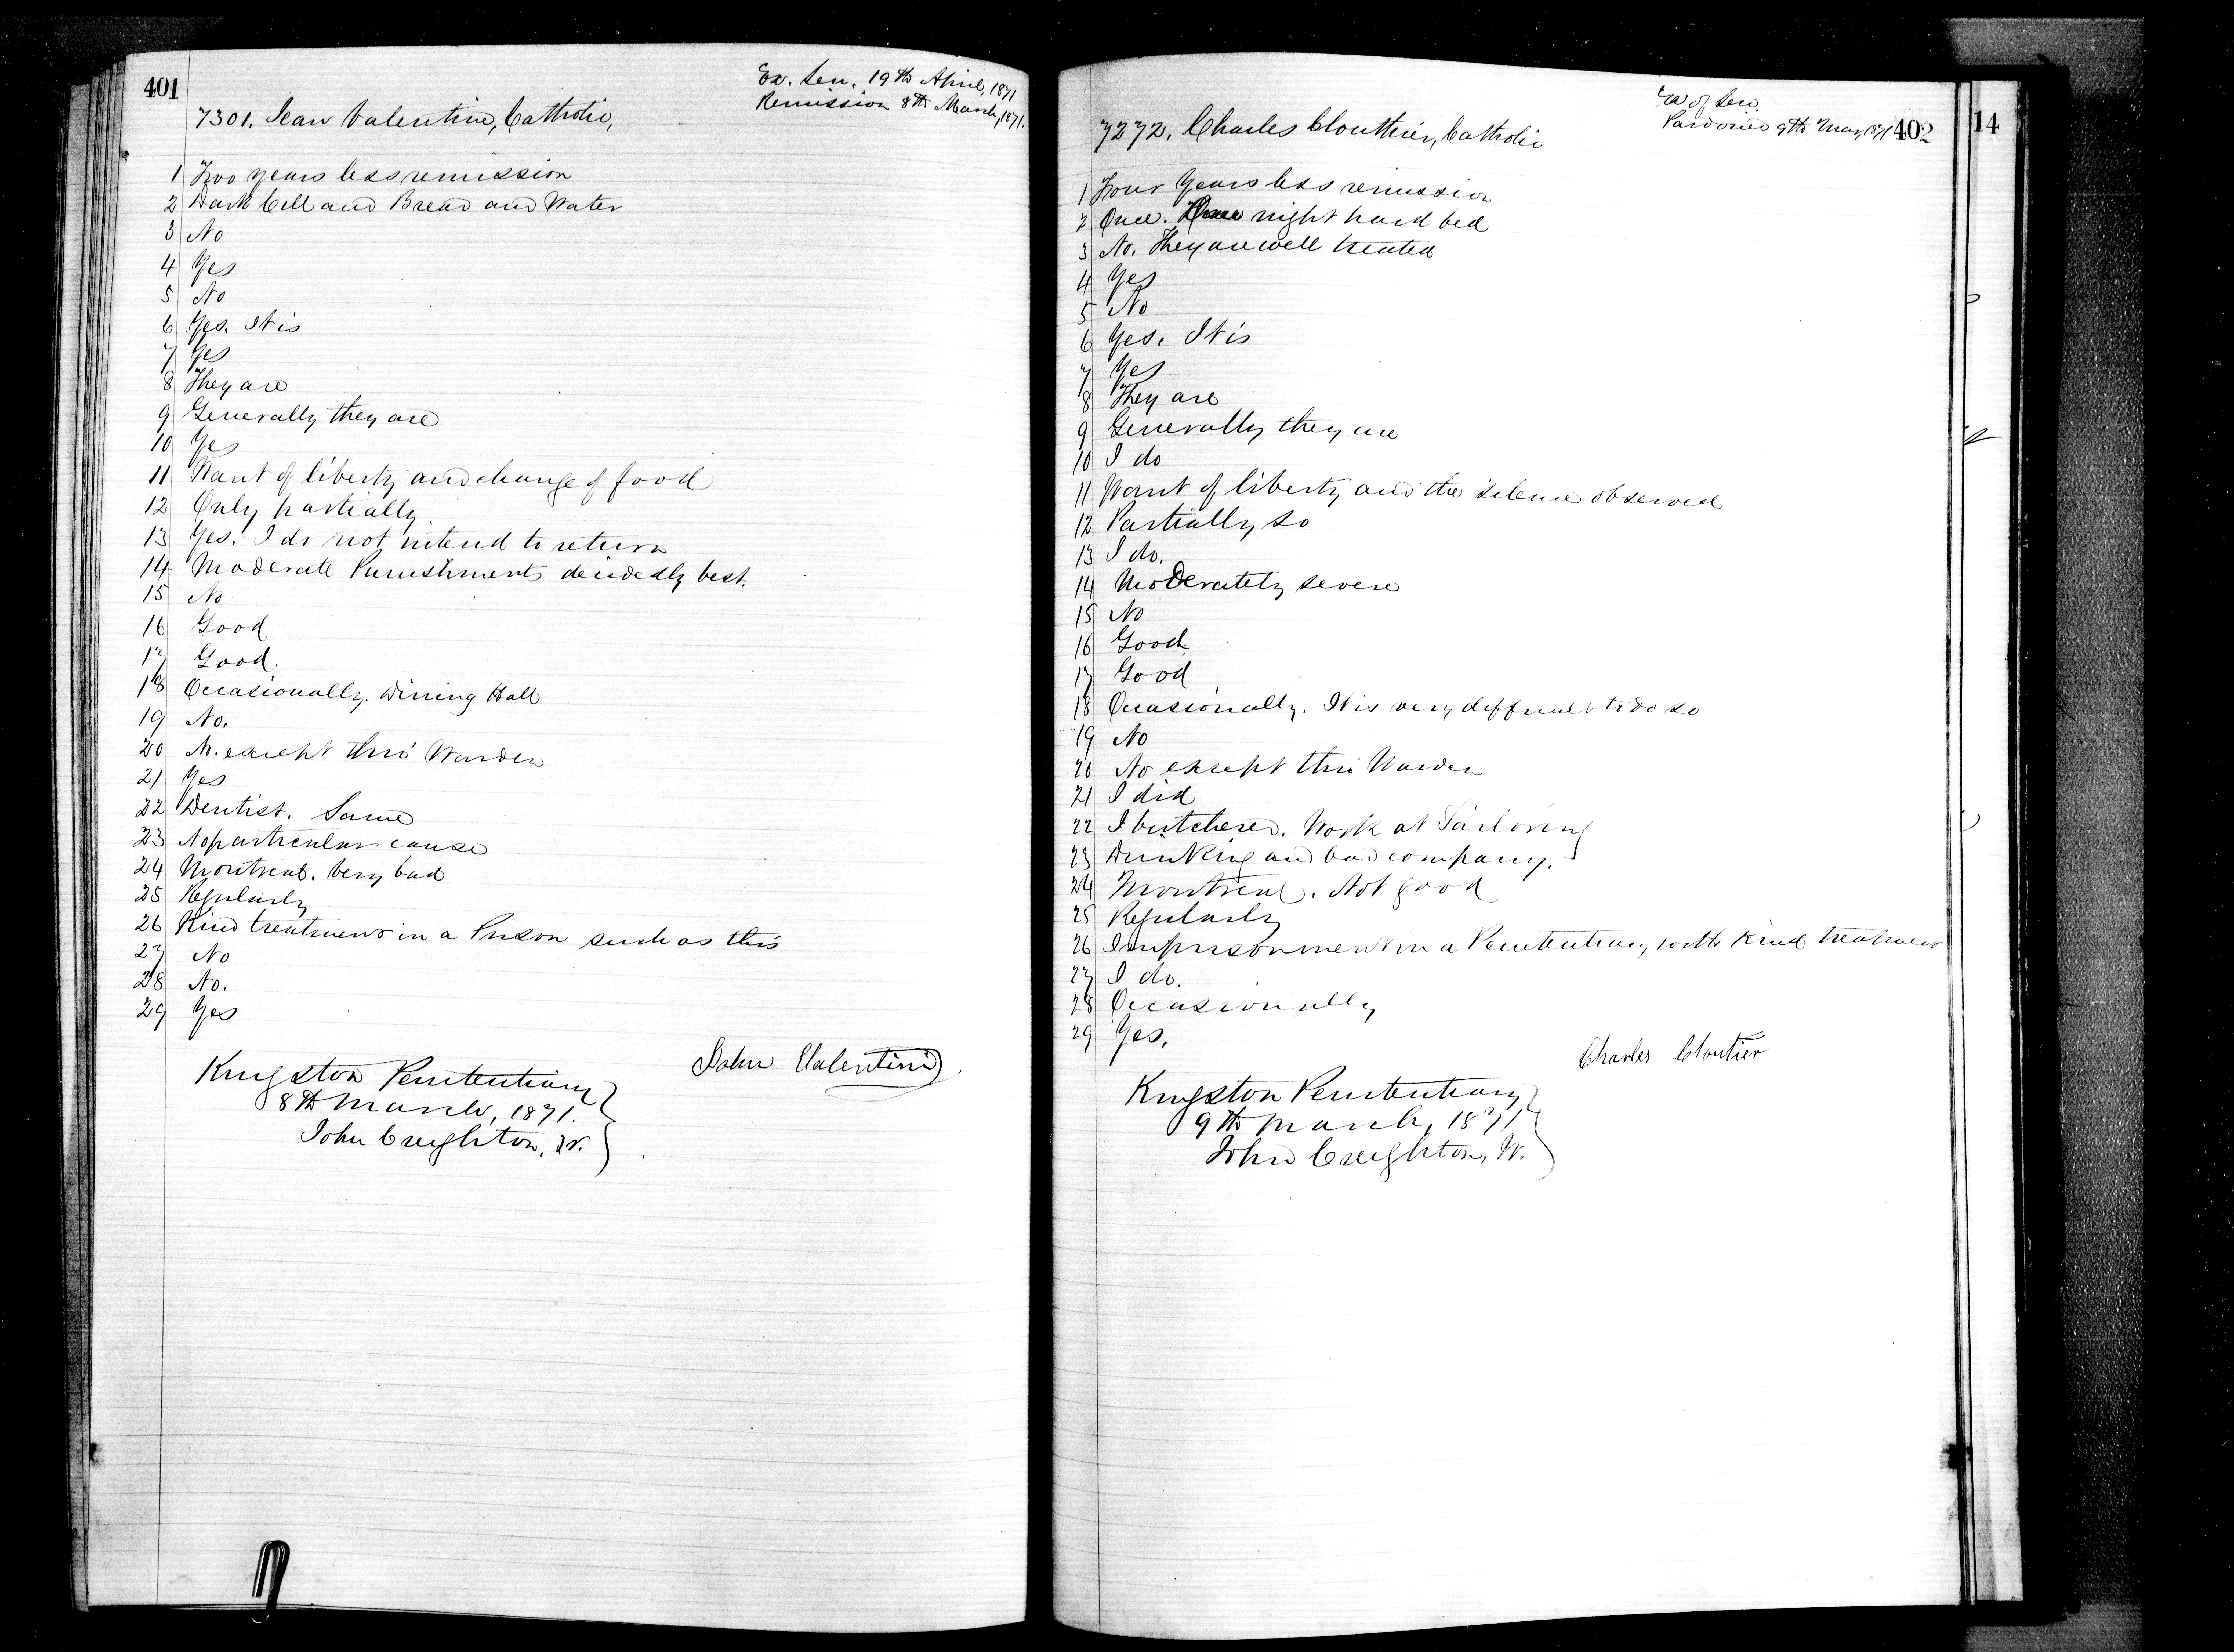 401
Ex. Sen. 19th April, 1871
Remission 8th March, 1871.
7301. Jean Valentine, Catholic,
1 Two years less remission
2 Dark Cell and Bread and Water
3 No
4 Yes
5 No
6 Yes. It is
7 Yes
8 They are
9 Generally they are
10 Yes
11 Want of liberty and change of food
12 Only partially
13 Yes. I do not intend to return
14 Moderate Punishments decidedly best.
15 No
16 Good
17 Good.
18 Occasionally. Dining Hall
19 No.
20 No. except thro' Warden
21 Yes
22 Dentist. Same
23 No particular cause
24 Montreal. Very bad
25 Regularly
26 Kind treatment in a Prison such as this
27 No
28 No.
29 Yes
John Valentine
Kingston Penitentiary
8th March, 1871.
John Creighton, W.
Ex of Sen.
Pardoned 9th Mar, 1871
402
14
7272. Charles Clouthier, Catholic
1 Four Years less remission
2 Once. night hard bed
3 No. They are well treated
4 Yes
5 No
6 Yes. It is
7 Yes
8 They are
9 Generally they are
10 I do
11 Want of liberty and the silence observed
12 Partially so
13 I do.
14 Moderately severe
15 No
16 Good
17 Good
18 Occasionally. It is very difficult to do so
19 No
20 No except thro Warden
21 I did
22 I butchered. Work at Tailoring
23 Drinking and bad company.
24 Montreal. Not good
25 Regularly
26 Imprisonment in a Penitentiary, with Kind treatment
27 I do.
28 Occasionally
29 Yes.
Charles Cloutier
Kingston Penitentiary
9th March, 1871
John Creighton, W.